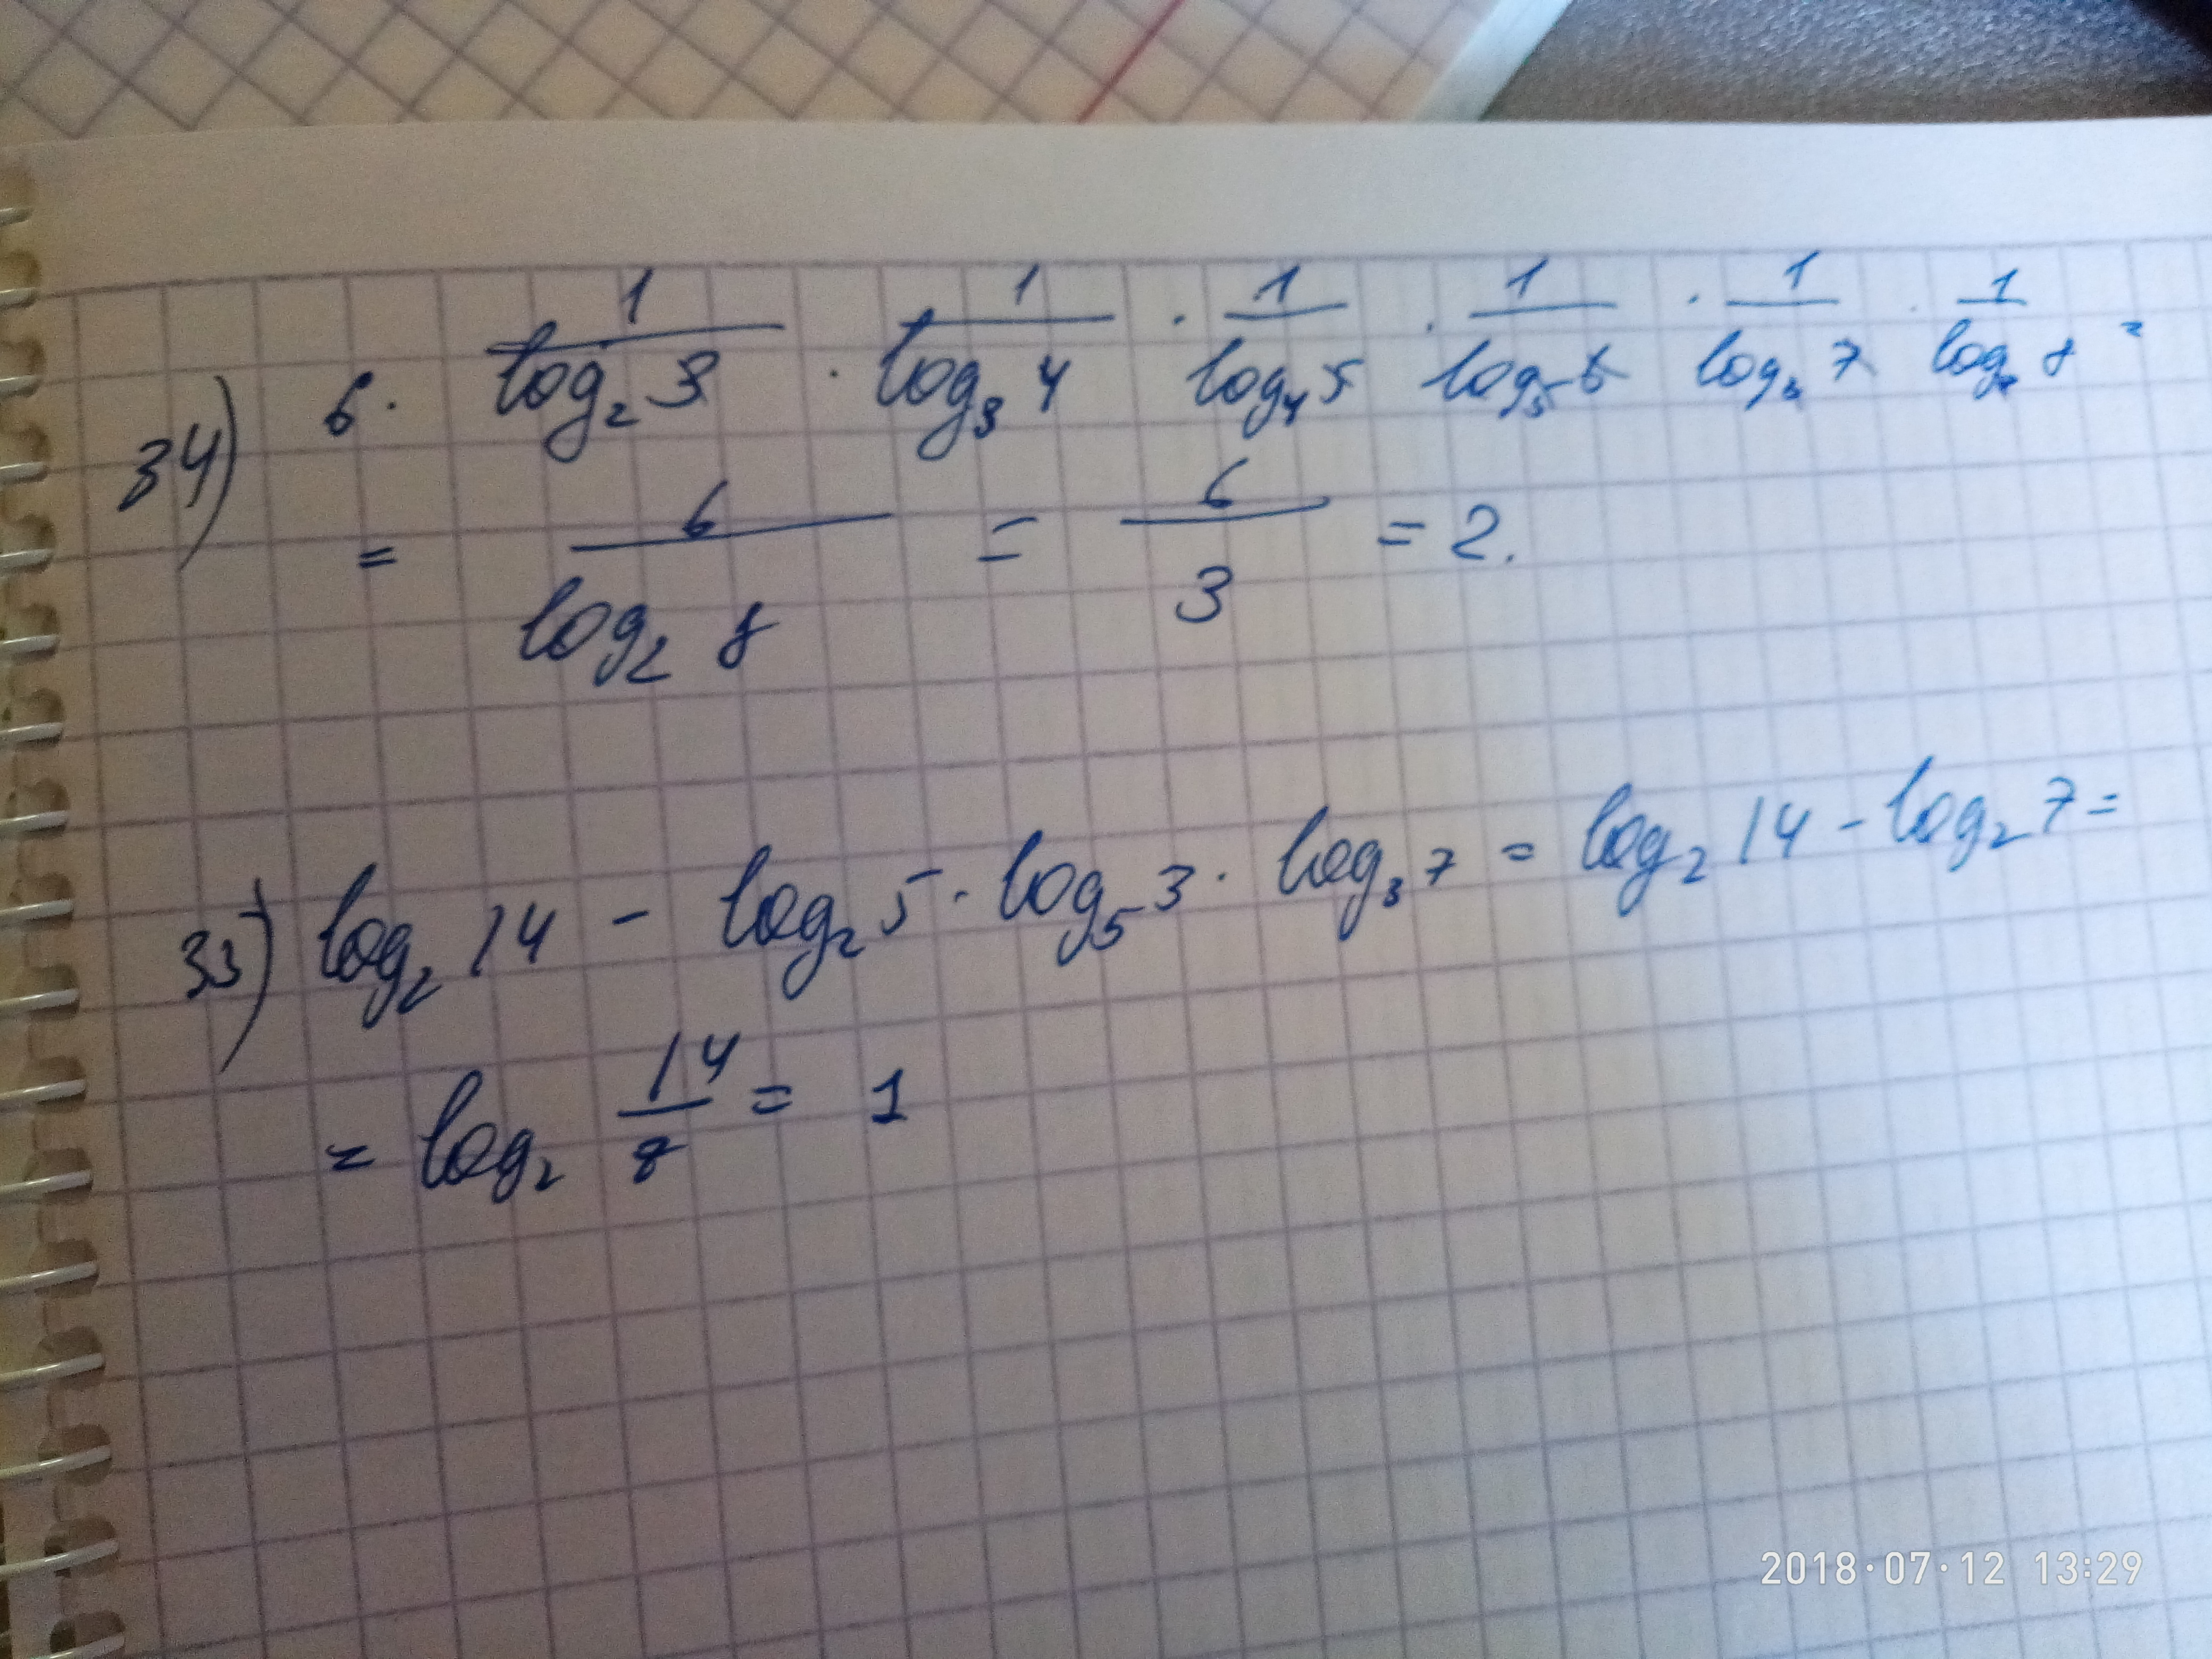 34) 6 · 1/log₂ 3 · 1/log₃ 4 · 1/log₄ 5 · 1/log₅ 6 · 1/log₆ 7 · 1/log₇ 8 =
= 6/log₂ 8 = 6/3 = 2.
33) log₂ 14 - log₂ 5 · log₅ 3 · log₃ 7 = log₂ 14 - log₂ 7 =
= log₂ 14/7 = 1
2018·07·12 13:29